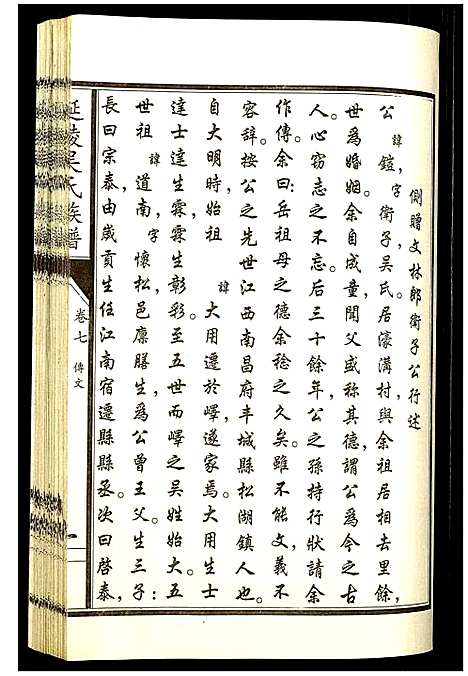 側贈文林郎衛子公行述
公諱鎧，字衛子吳氏。居濠溝村，與余祖居相去里餘
世爲婚姻。余自成童聞父盛称其德，謂公爲今之古
人。心窃志之不忘。后三十餘年，公之孫持行狀請余
作傳。余曰：岳祖母之德余稔之久矣。雖不能文，義不
容辞。按公之先世江西南昌府丰城縣松湖鎮人也。
自大明時，始祖諱大用遷於嶧，遂家焉。大用生士
達士達生霖霖生彰彩。至五世而嶧之吴姓始大。五
世祖諱道南，字懷松，邑廩膳生爲公曾王父。生三子：
長曰宗泰，由歲貢生任江南宿遷縣縣丞。次曰啓泰，
延陵吴氏族譜
卷七 傳文
一